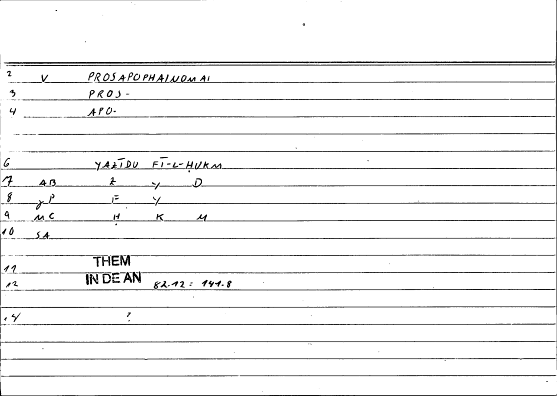 2 V PROSAPOPHAINOMAI
3 PROS-
4 APO-
6 YAZĪDU FĪ-L-ḤUKM
7 AB Z Y D
8 P F Y
9 C Ḥ K M
10 SA
11 THEM
12 IN DE AN 82.12 : 141.8
14 ?